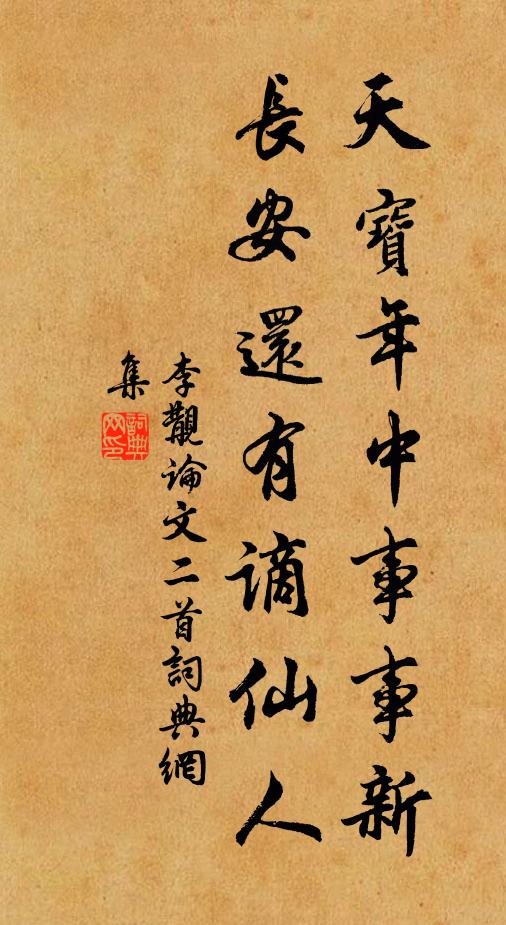 天寶年中事事新
長安還有謫仙人
李覯論文二首詞典網
集
詞典網印